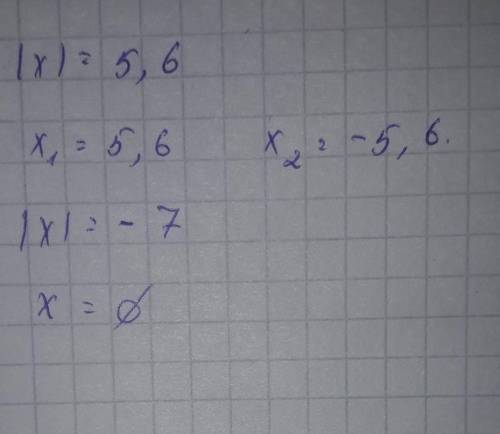 |x| = 5,6
x₁ = 5,6 x₂ = -5,6.
|x| = - 7
x = ∅